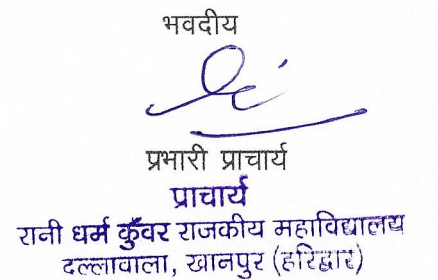 भवदीय
प्रभारी प्राचार्य
प्राचार्य
रानी धर्म कुँवर राजकीय महाविद्यालय
दल्लावाला, खानपुर (हरिद्वार)